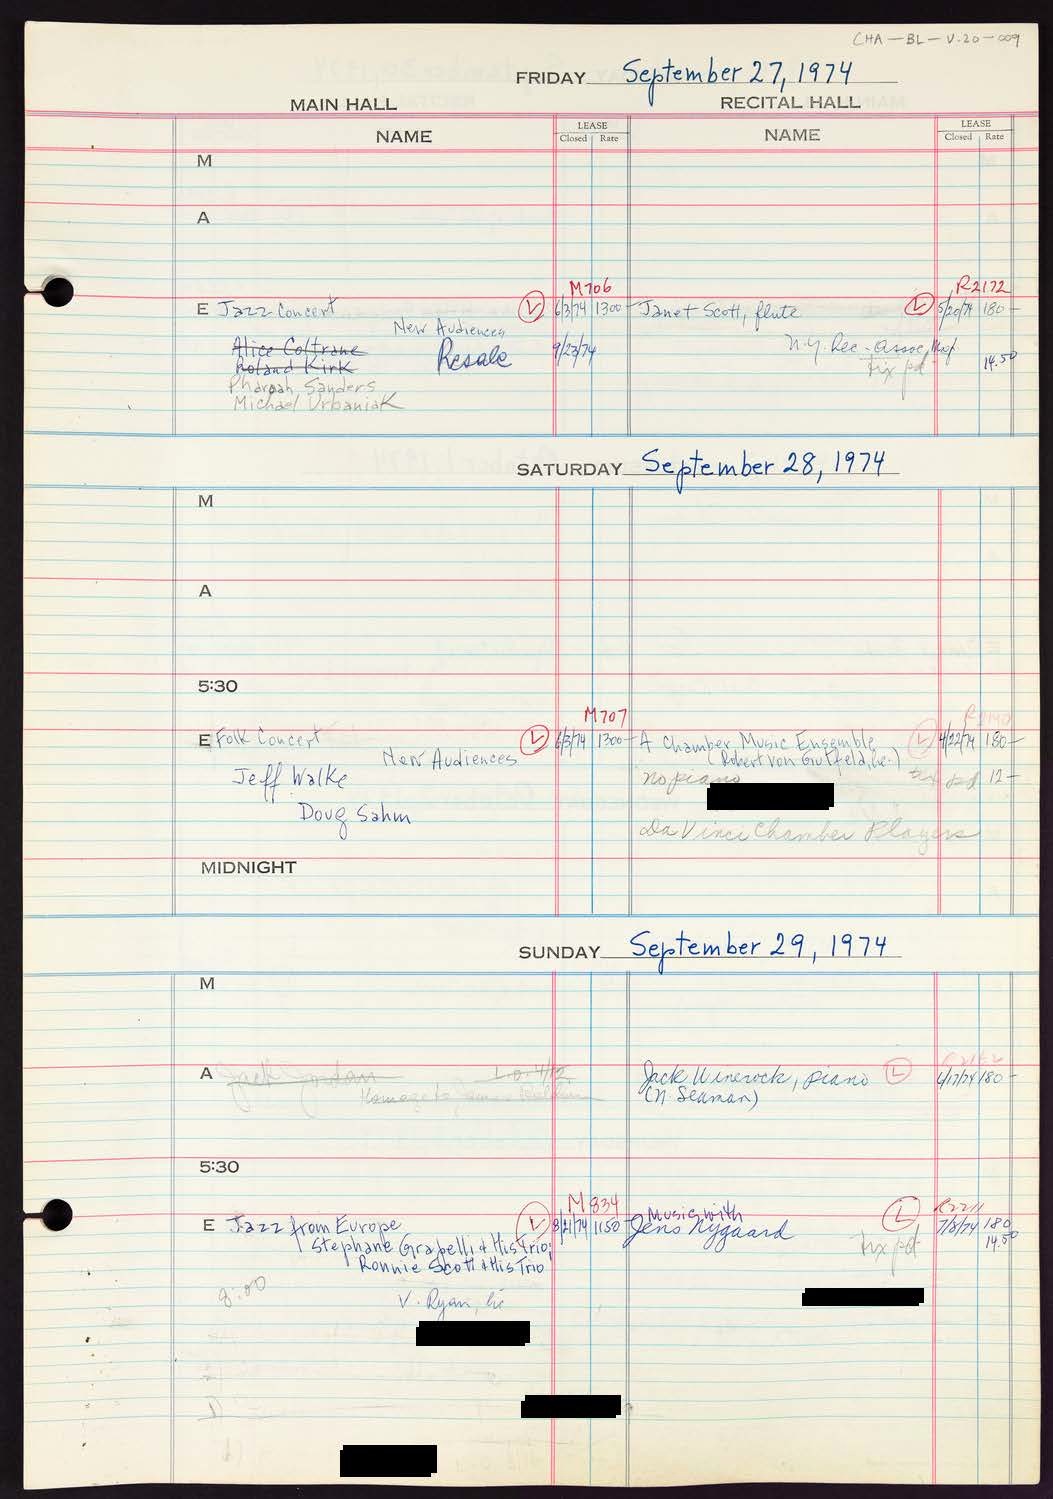 CHA-BL-V.20-009
FRIDAY September 27, 1974
MAIN HALL RECITAL HALL
NAME LEASE Closed Rate NAME LEASE Closed Rate
M
A
M706 R2172
E Jazz Concert L 6/3/74 1300- Janet Scott, flute L 5/20/74 180-
New Audiences
Alice Coltrane Resale 9/23/74 N.Y. Rec. Assoc., Mgt.
Roland Kirk tix pd 14.50
Pharoah Sanders
Michael UrbaniaK
SATURDAY September 28, 1974
M
A
5:30
M707 R2140
E Folk Concert L 6/3/74 1300- A Chamber Music Ensemble L 4/22/74 180-
New Audiences (Robert Von Gutfeld, lic.)
Jeff Walke no piano tix pd 12-
Doug Sahm
Da Vinci Chamber Players
MIDNIGHT
SUNDAY September 29, 1974
M
A Jack Jordan Jack Winerock, piano L 4/17/74 180-
Homage to James Baldwin (N. Seaman)
5:30
M834 R2211
E Jazz from Europe L 8/21/74 1150- Music with L 7/8/74 180
Stephane Grapelli & His Trio; Jens Nygaard tix pd 14.50
Ronnie Scott & His Trio
8:00 V. Ryan, lic